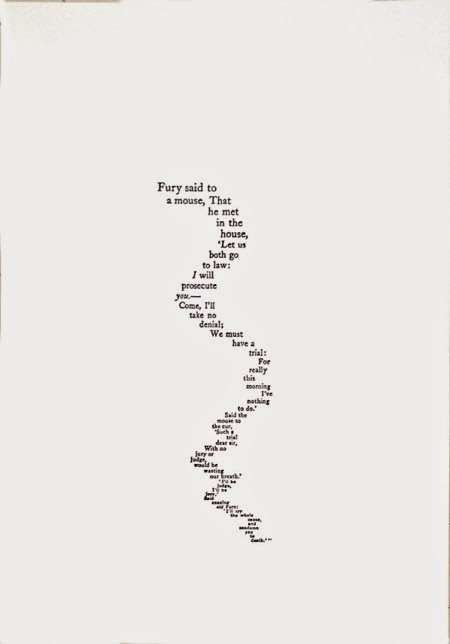 Fury said to
a mouse, That
he met
in the
house,
'Let us
both go
to law:
I will
prosecute
you.—
Come, I'll
take no
denial;
We must
have a
trial:
For
really
this
morning
I've
nothing
to do.'
Said the
mouse to
the cur,
'Such a
trial
dear sir,
With no
jury or
judge,
would be
wasting
our breath.'
'I'll be
judge,
I'll be
jury,'
Said
cunning
old Fury:
'I'll try
the whole
cause,
and
condemn
you
to
death.'"